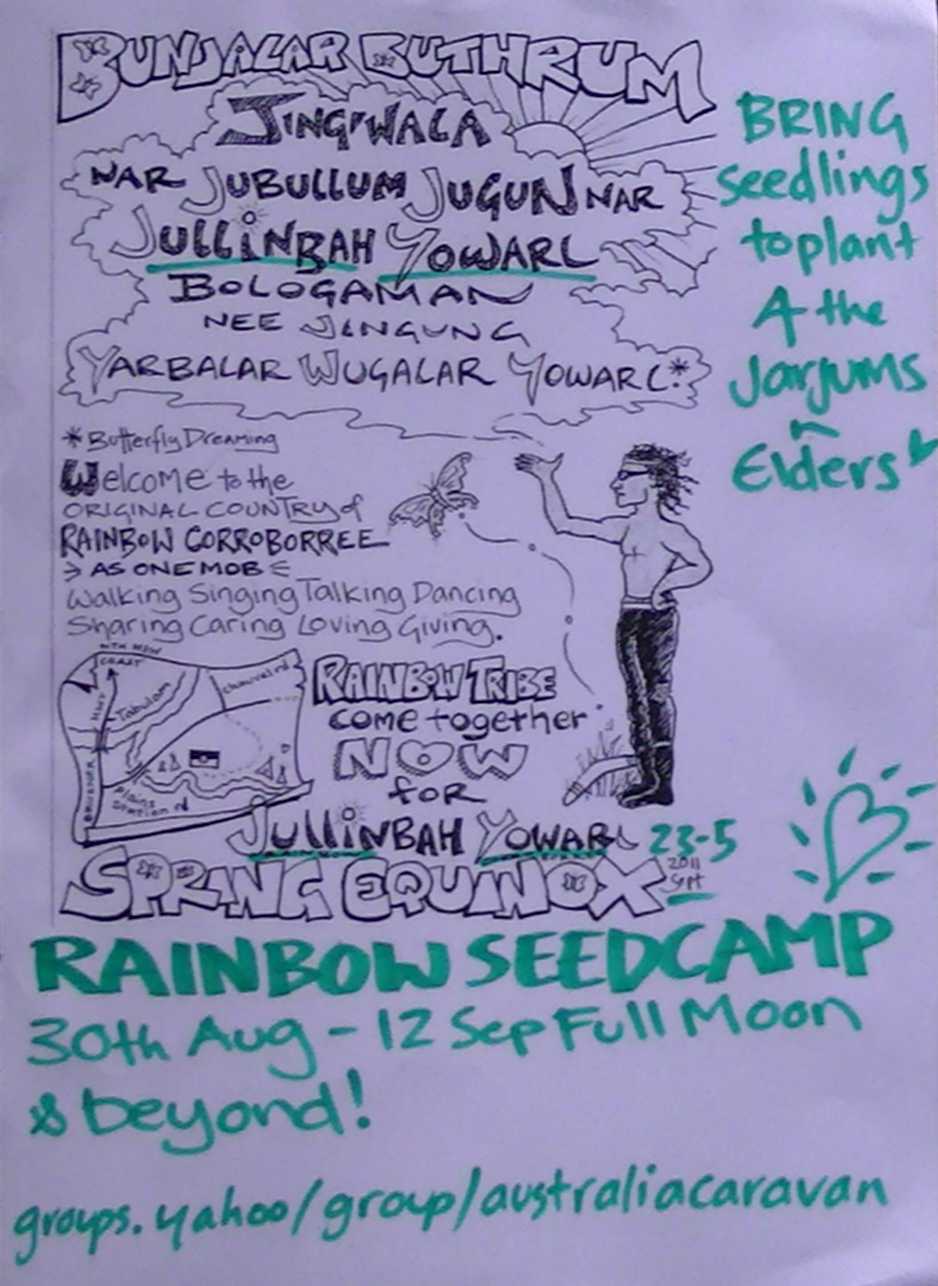 BUNJALAR BUTHRUM
JINGIWALA
NAR JUBULLUM JUGUN NAR
JULLINBAH YOWARL
BOLOGAMAN
NEE JINGUNG
YARBALAR WUGALAR YOWARL*
*Butterfly Dreaming
Welcome to the
ORIGINAL COUNTRY of
RAINBOW CORROBORREE
> AS ONE MOB <
Walking Singing Talking Dancing
Sharing Caring Loving Giving.
NTH NSW
COAST
HWY
Tabulam
Chauvel rd
BRUXNER
Plains
Station rd
RAINBOW TRIBE
come together
NOW
for
JULLINBAH YOWARL 23-5
2011
Sept
SPRING EQUINOX
BRING
seedlings
to plant
4 the
Jarjums
n
Elders
RAINBOW SEEDCAMP
30th Aug - 12 Sep Full Moon
& beyond!
groups.yahoo/group/australiacaravan